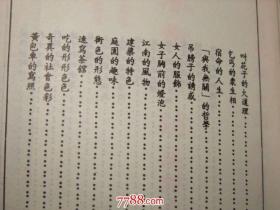 叫花子的大道理
乞丐的衆生相
宿命的人生
「與我無關」的哲學
吊膀子的誘惑
女人的服飾
女子胸前的燈泡
江南的風物
建築的特色
庭園的趣味
街色的形態
速寫茶館
吃的形形色色
奇異的社會色彩
黃包車的寫照
www.788111.com